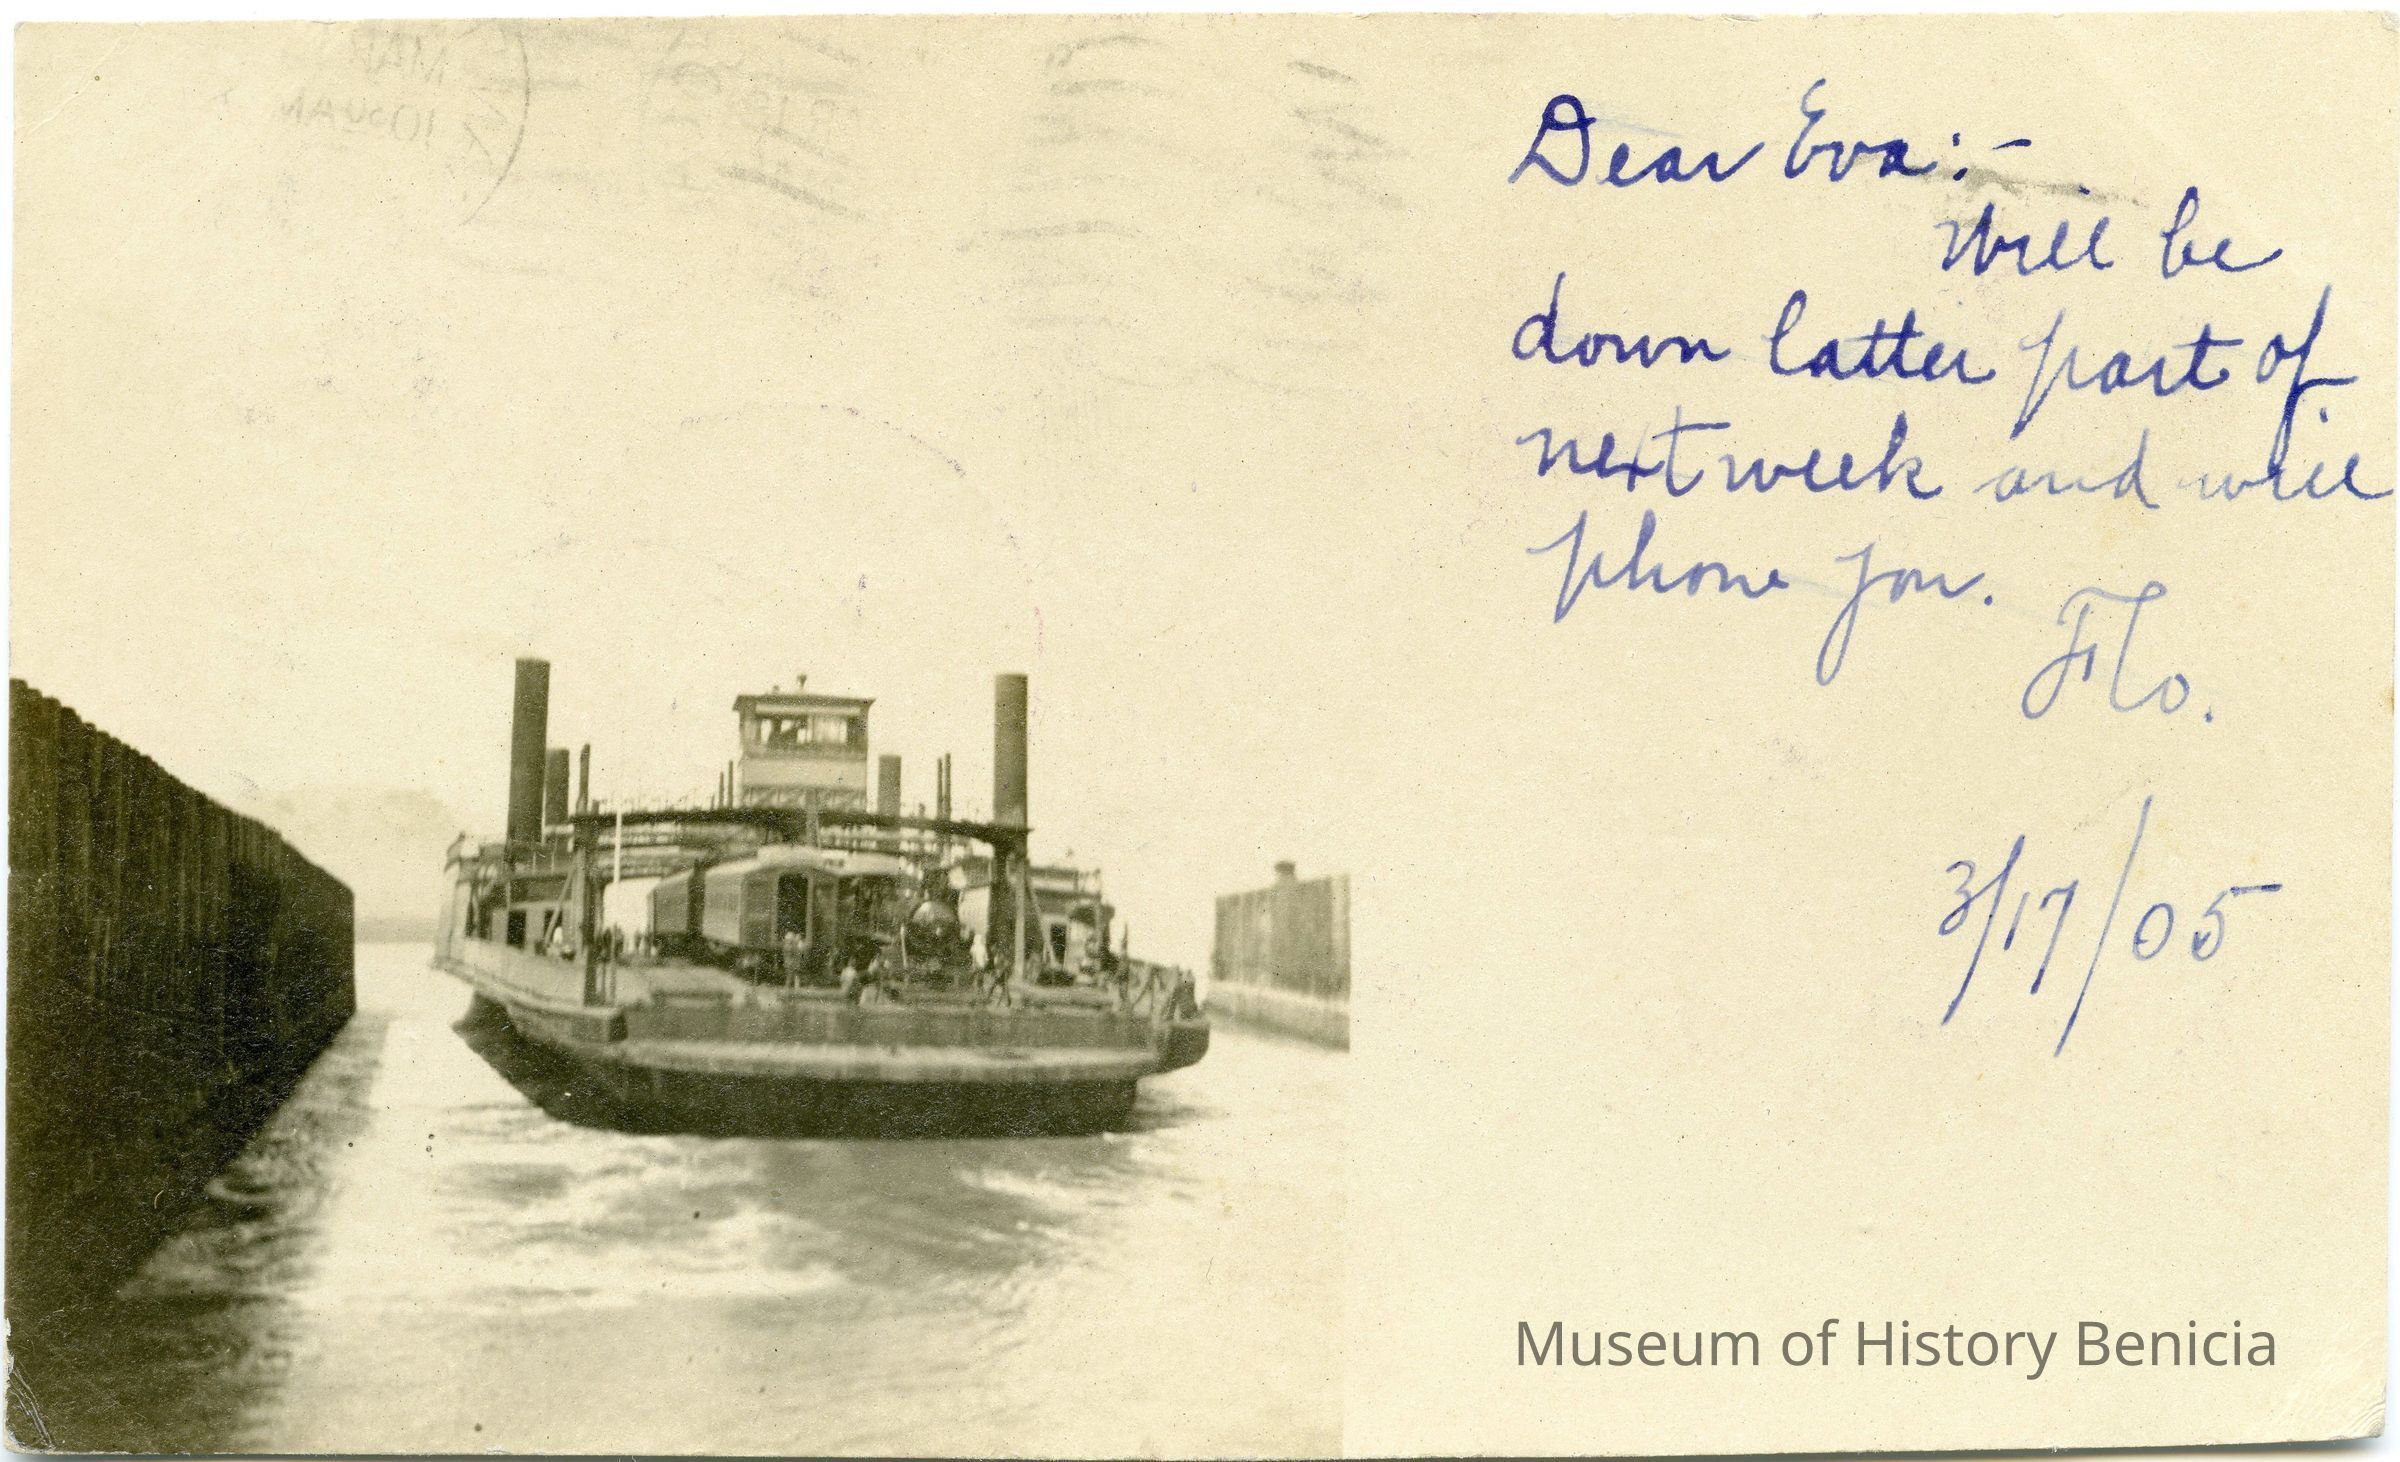 Dear Eva:-
Will be
down latter part of
next week and will
phone you.
Flo.
3/17/05
Museum of History Benicia